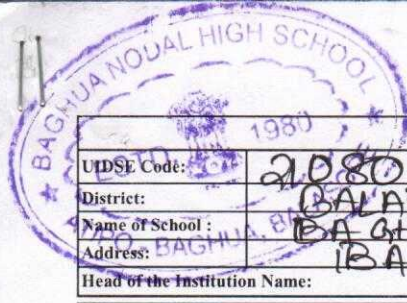 BAGHUA NODAL HIGH SCHOOL
ESTD 1980
AT/PO - BAGHUA, BA
UIDSE Code: 21080
District: BALA
Name of School : BAGH
Address: BA
Head of the Institution Name: